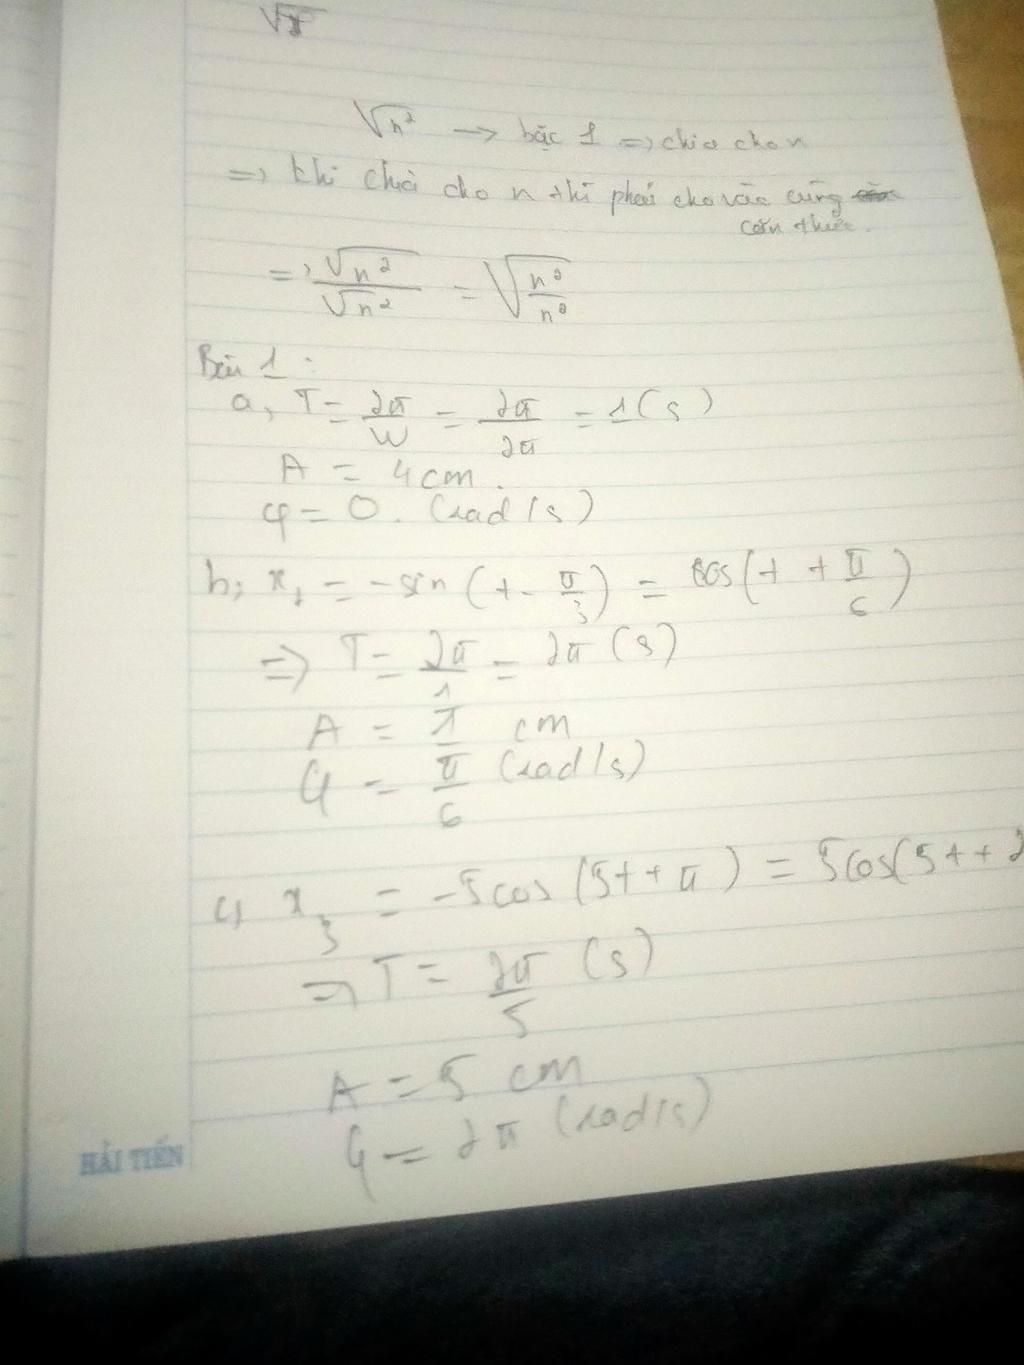 √x
√n² → bậc 1 => chia cho n
=> khi chia cho n thì phải cho vào cùng
căn thức.
=> √n² / √n² = √(n² / n²)
Bài 1 :
a, T = 2π/W = 2π/2π = 1 (s)
A = 4 cm.
φ = 0. (rad/s)
b; x₁ = -sin (t - π/3) = cos(t + π/6)
=> T = 2π/1 = 2π (s)
A = 1 cm
φ = π/6 (rad/s)
c, x₃ = -5cos (5t + π) = 5cos(5t + 2
=> T = 2π/5 (s)
A = 5 cm
φ = 2π (rad/s)
HẢI TIẾN